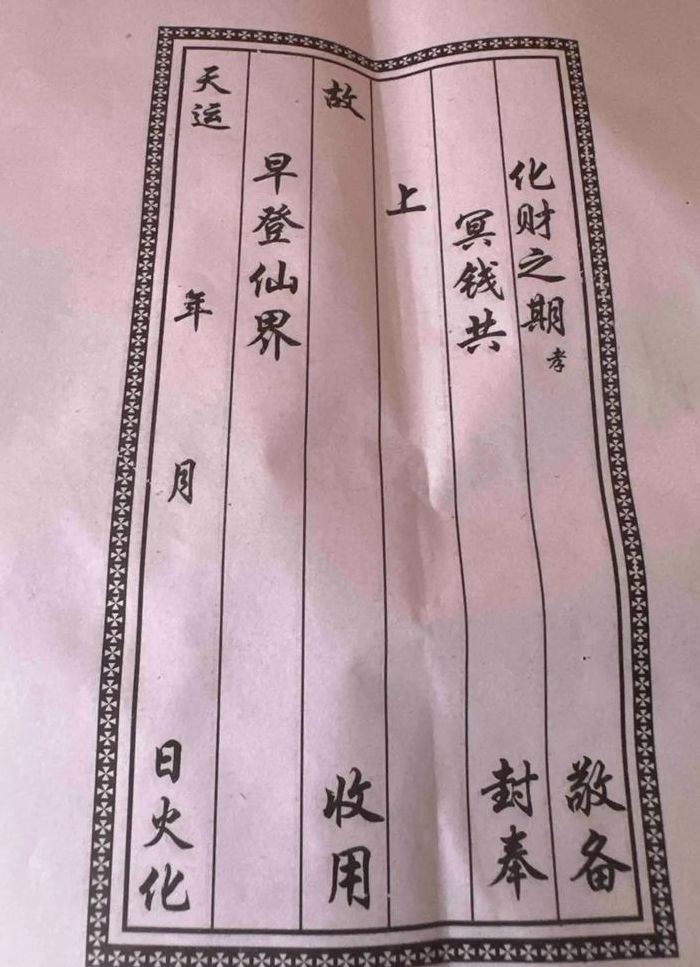 化财之期 孝 敬备
冥钱共 封奉
上
故 收用
早登仙界
天运 年 月 日火化